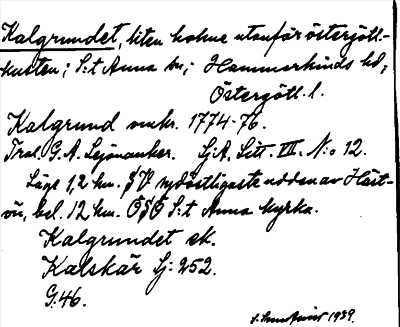 Kalgrundet, liten holme utanför östergötl.-
kusten; S:t Anna sn; Hammarkinds hd;
Östergötl. l.
Kalgrund omkr. 1774-76.
G. A. Lejonanker. Sj.A. Litt. VII. N:o 12.
Läge 1,2 km. SV sydostligaste udden av Häst-
ön, bel. 12 km. OSO S:t Anna kyrka.
Kalgrundet ek.
Kalskär Sj: 252.
G:46.
1939.